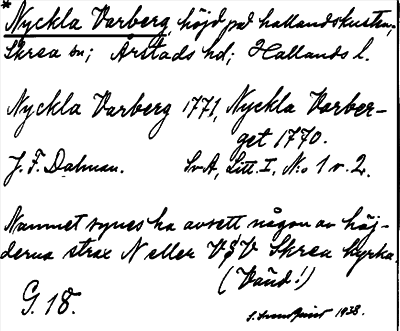 * Nyckla Varberg, höjd på hallandskusten,
Skrea sn; Årstads hd; Hallands l.
Nyckla Varberg 1771, Nyckla Varber-
get 1770.
J. F. Dalman. SvA, Litt. I, N:o 1 o. 2.
Namnet synes ha avsett någon av höj-
derna strax N eller V § V Skrea kyrka.
(Vänd!)
G. 18.
1938.